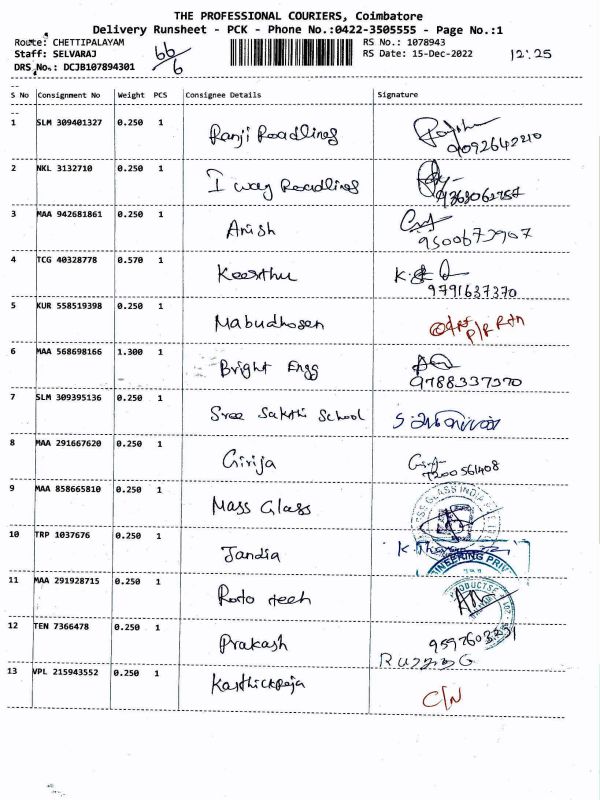 THE PROFESSIONAL COURIERS, Coimbatore
Delivery Runsheet - PCK - Phone No.:0422-3505555 - Page No.:1
Route: CHETTIPALAYAM RS No.: 1078943
Staff: SELVARAJ 66/6 RS Date: 15-Dec-2022 12:25
DRS No.: DCJB107894301
S No Consignment No Weight PCS Consignee Details Signature
1 SLM 309401327 0.250 1 Ranji Roadlines
9092642210
2 NKL 3132710 0.250 1 I way Roadlines
3 MAA 942681861 0.250 1 Arish
9500673907
4 TCG 40328778 0.570 1 Keerthu
9791637370
5 KUR 558519398 0.250 1 Mabudhosen
P/R Rtn
6 MAA 568698166 1.300 1 Bright Engg
9788337370
7 SLM 309395136 0.250 1 Sree Sakthi School
8 MAA 291667620 0.250 1 Girija
7200561408
9 MAA 858665810 0.250 1 Mass Glass
GLASS INDIA
10 TRP 1037676 0.250 1 Jandia
11 MAA 291928715 0.250 1 Roto tech
12 TEN 7366478 0.250 1 Prakash
13 VPL 215943552 0.250 1 Karthickraja C/N